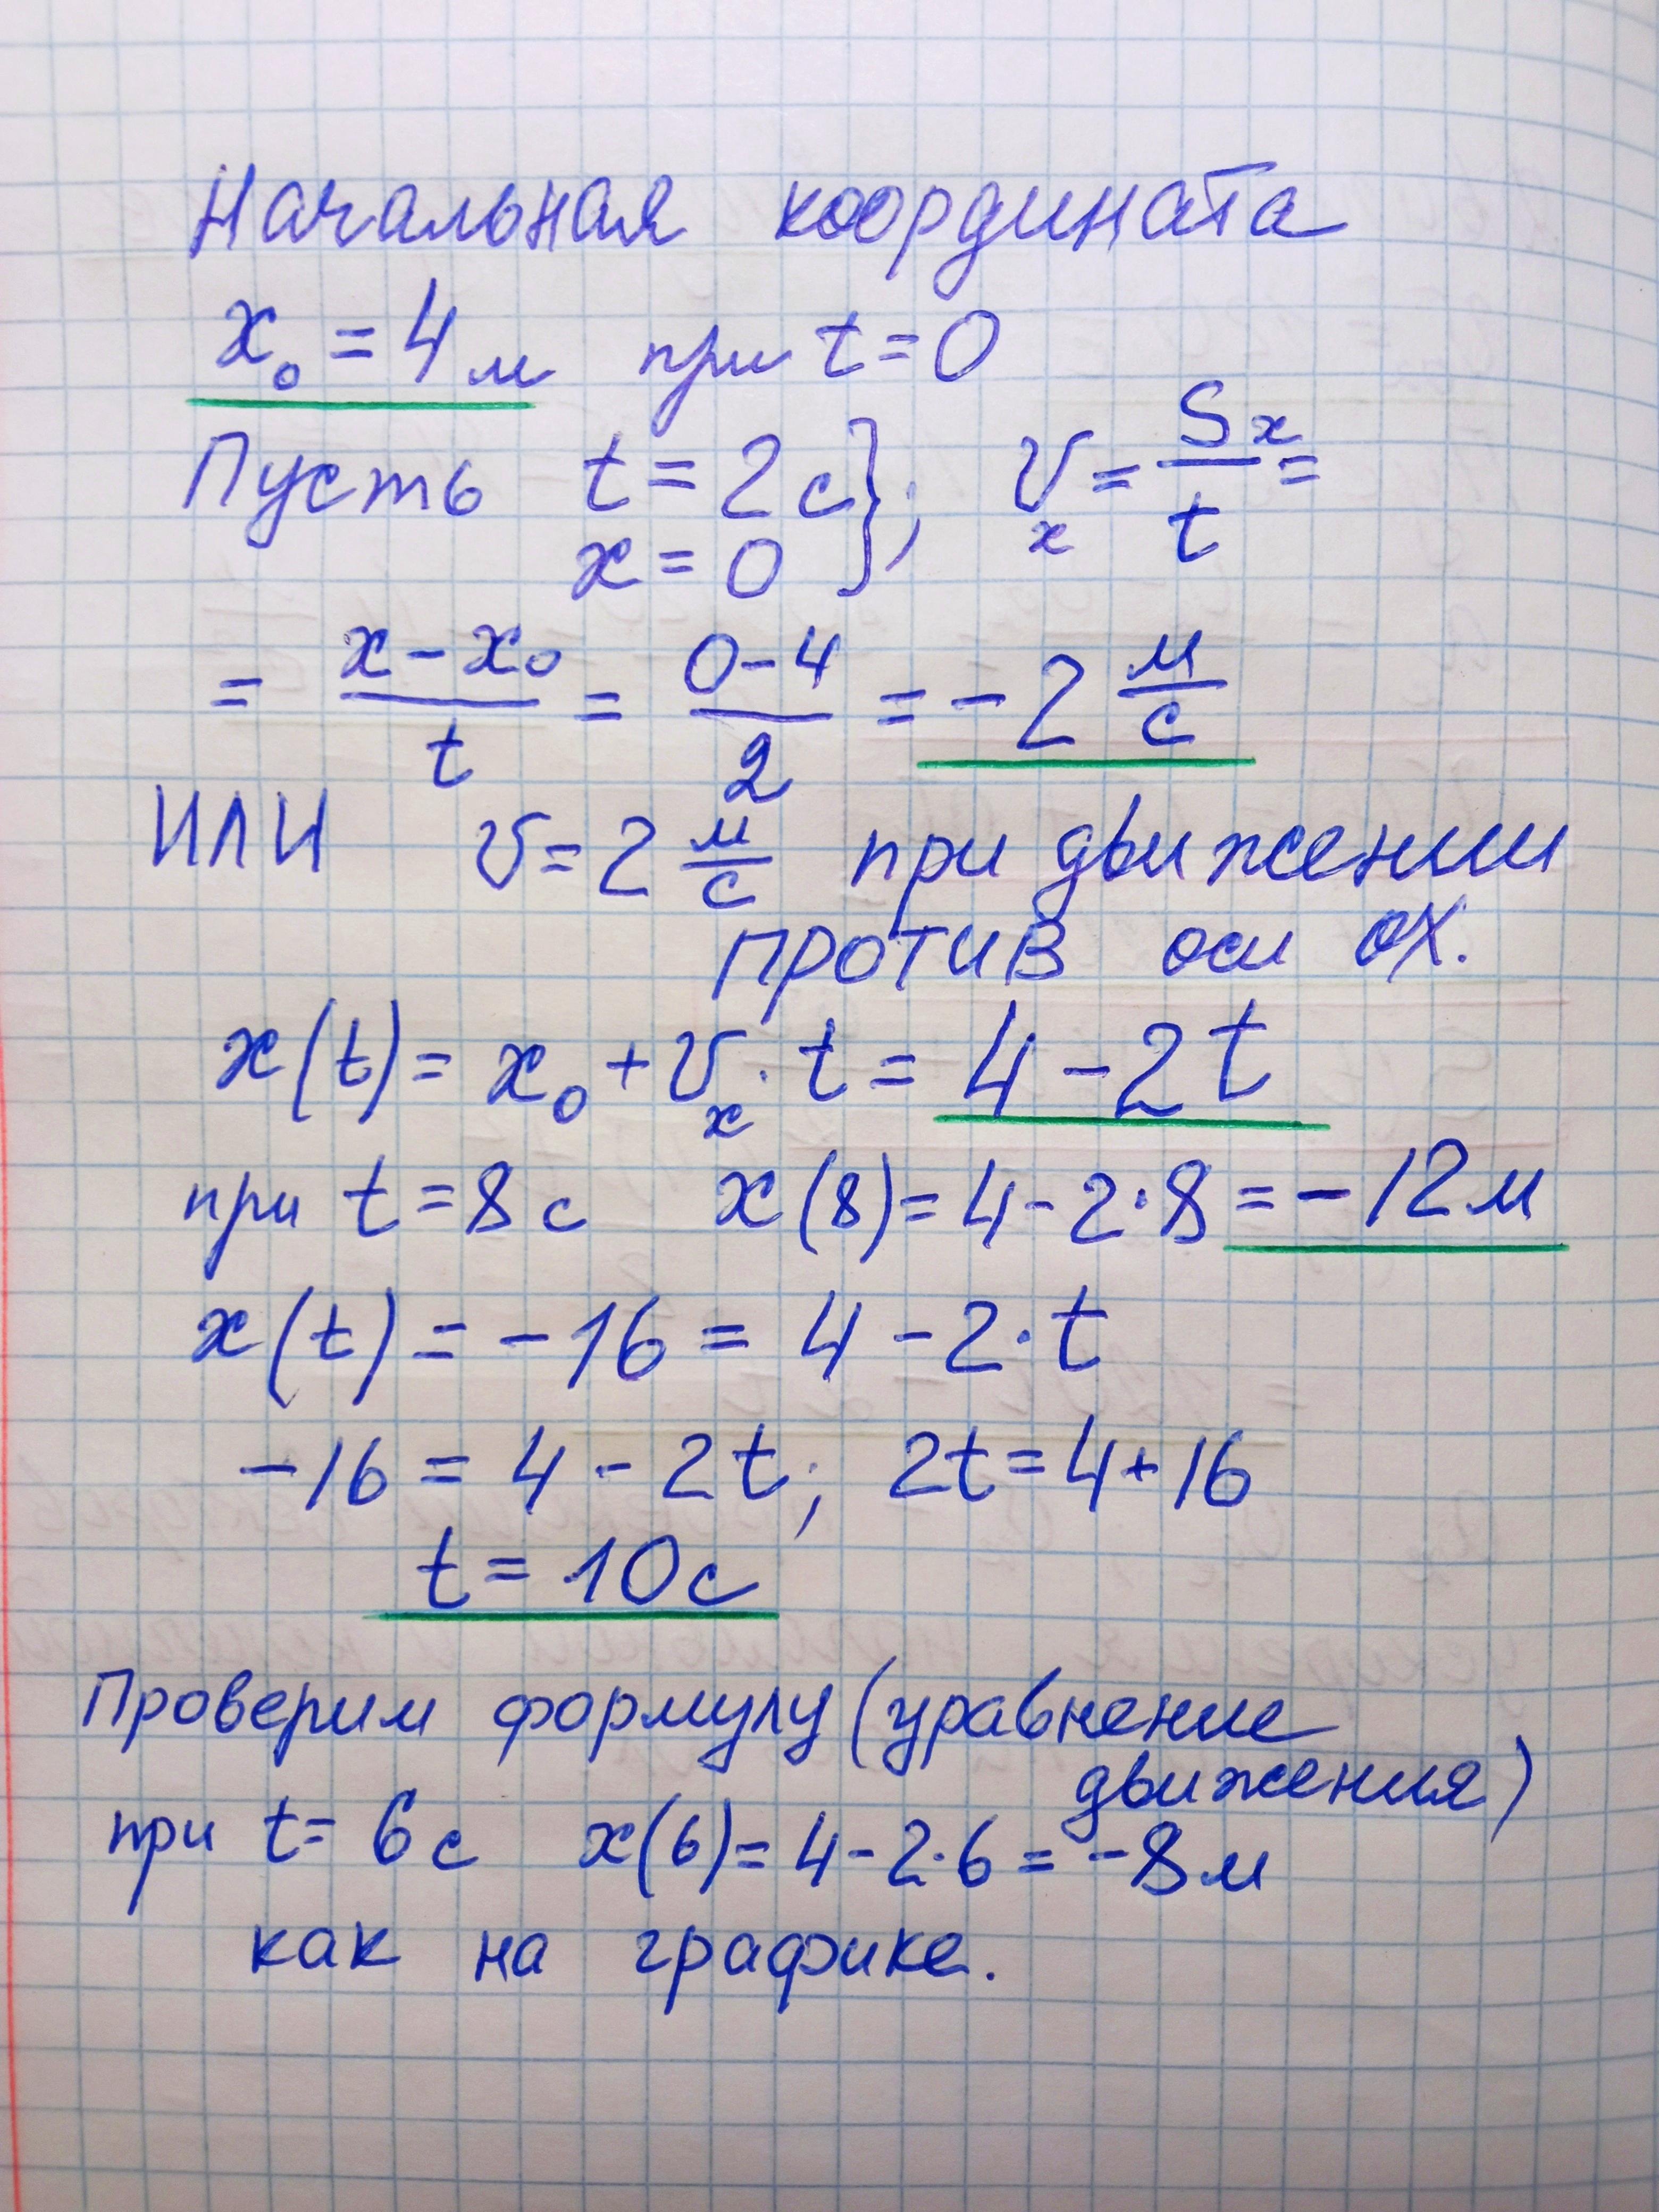 Начальная координата
x₀ = 4 м при t = 0
Пусть t = 2 с } ; vₓ = Sₓ/t =
x = 0
= (x - x₀)/t = (0 - 4)/2 = -2 м/с
ИЛИ v = 2 м/с при движении
против оси OX.
x(t) = x₀ + vₓ · t = 4 - 2t
при t = 8 с x(8) = 4 - 2·8 = -12 м
x(t) = -16 = 4 - 2·t
-16 = 4 - 2t; 2t = 4 + 16
t = 10 с
Проверим формулу (уравнение
движения)
при t = 6 с x(6) = 4 - 2·6 = -8 м
как на графике.